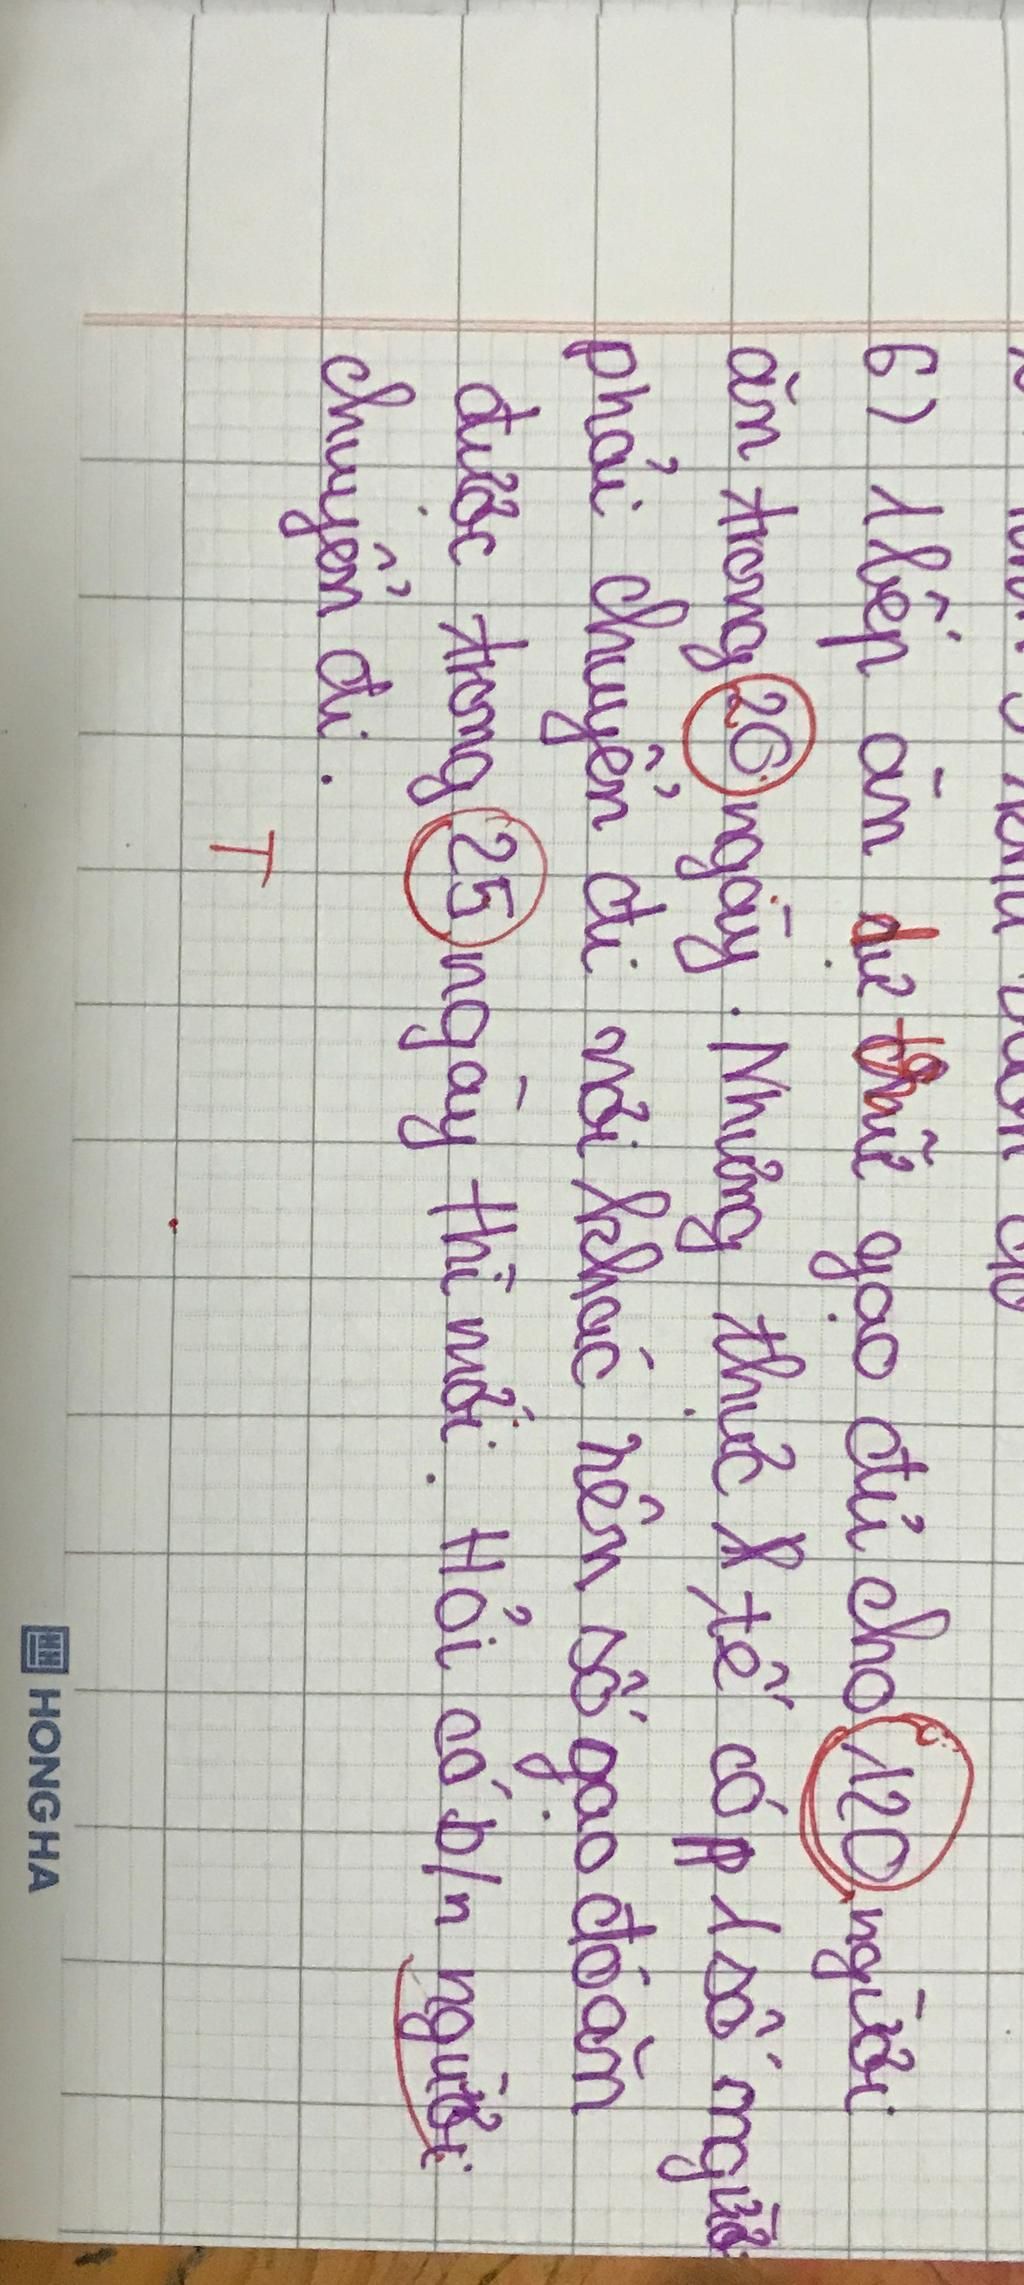 6) 1 bếp ăn dự trữ gạo đủ cho 120 người
ăn trong 20 ngày. Nhưng thực tế có 1 số người
phải chuyển đi nơi khác nên số gạo đó ăn
được trong 25 ngày thì mới. Hỏi có b/n người
chuyển đi.
T
HONG HA